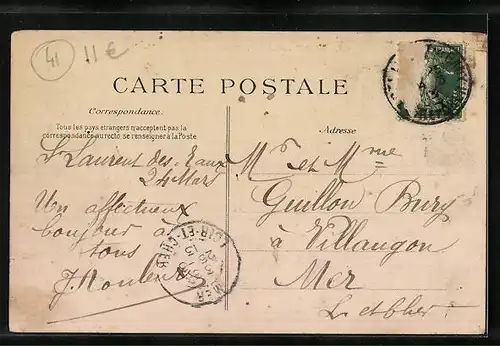 41 11 €
CARTE POSTALE
Correspondance.
Tous les pays étrangers n'acceptent pas la
correspondance au recto, se renseigner à la Poste
Adresse
St Laurent des-Eaux
24 Mars
Un affectueux
bonjour à
tous
Mr et Mme
Guillon Bury
à Villaugon
Mer
L et Cher
MER
LOIR-ET-CHER